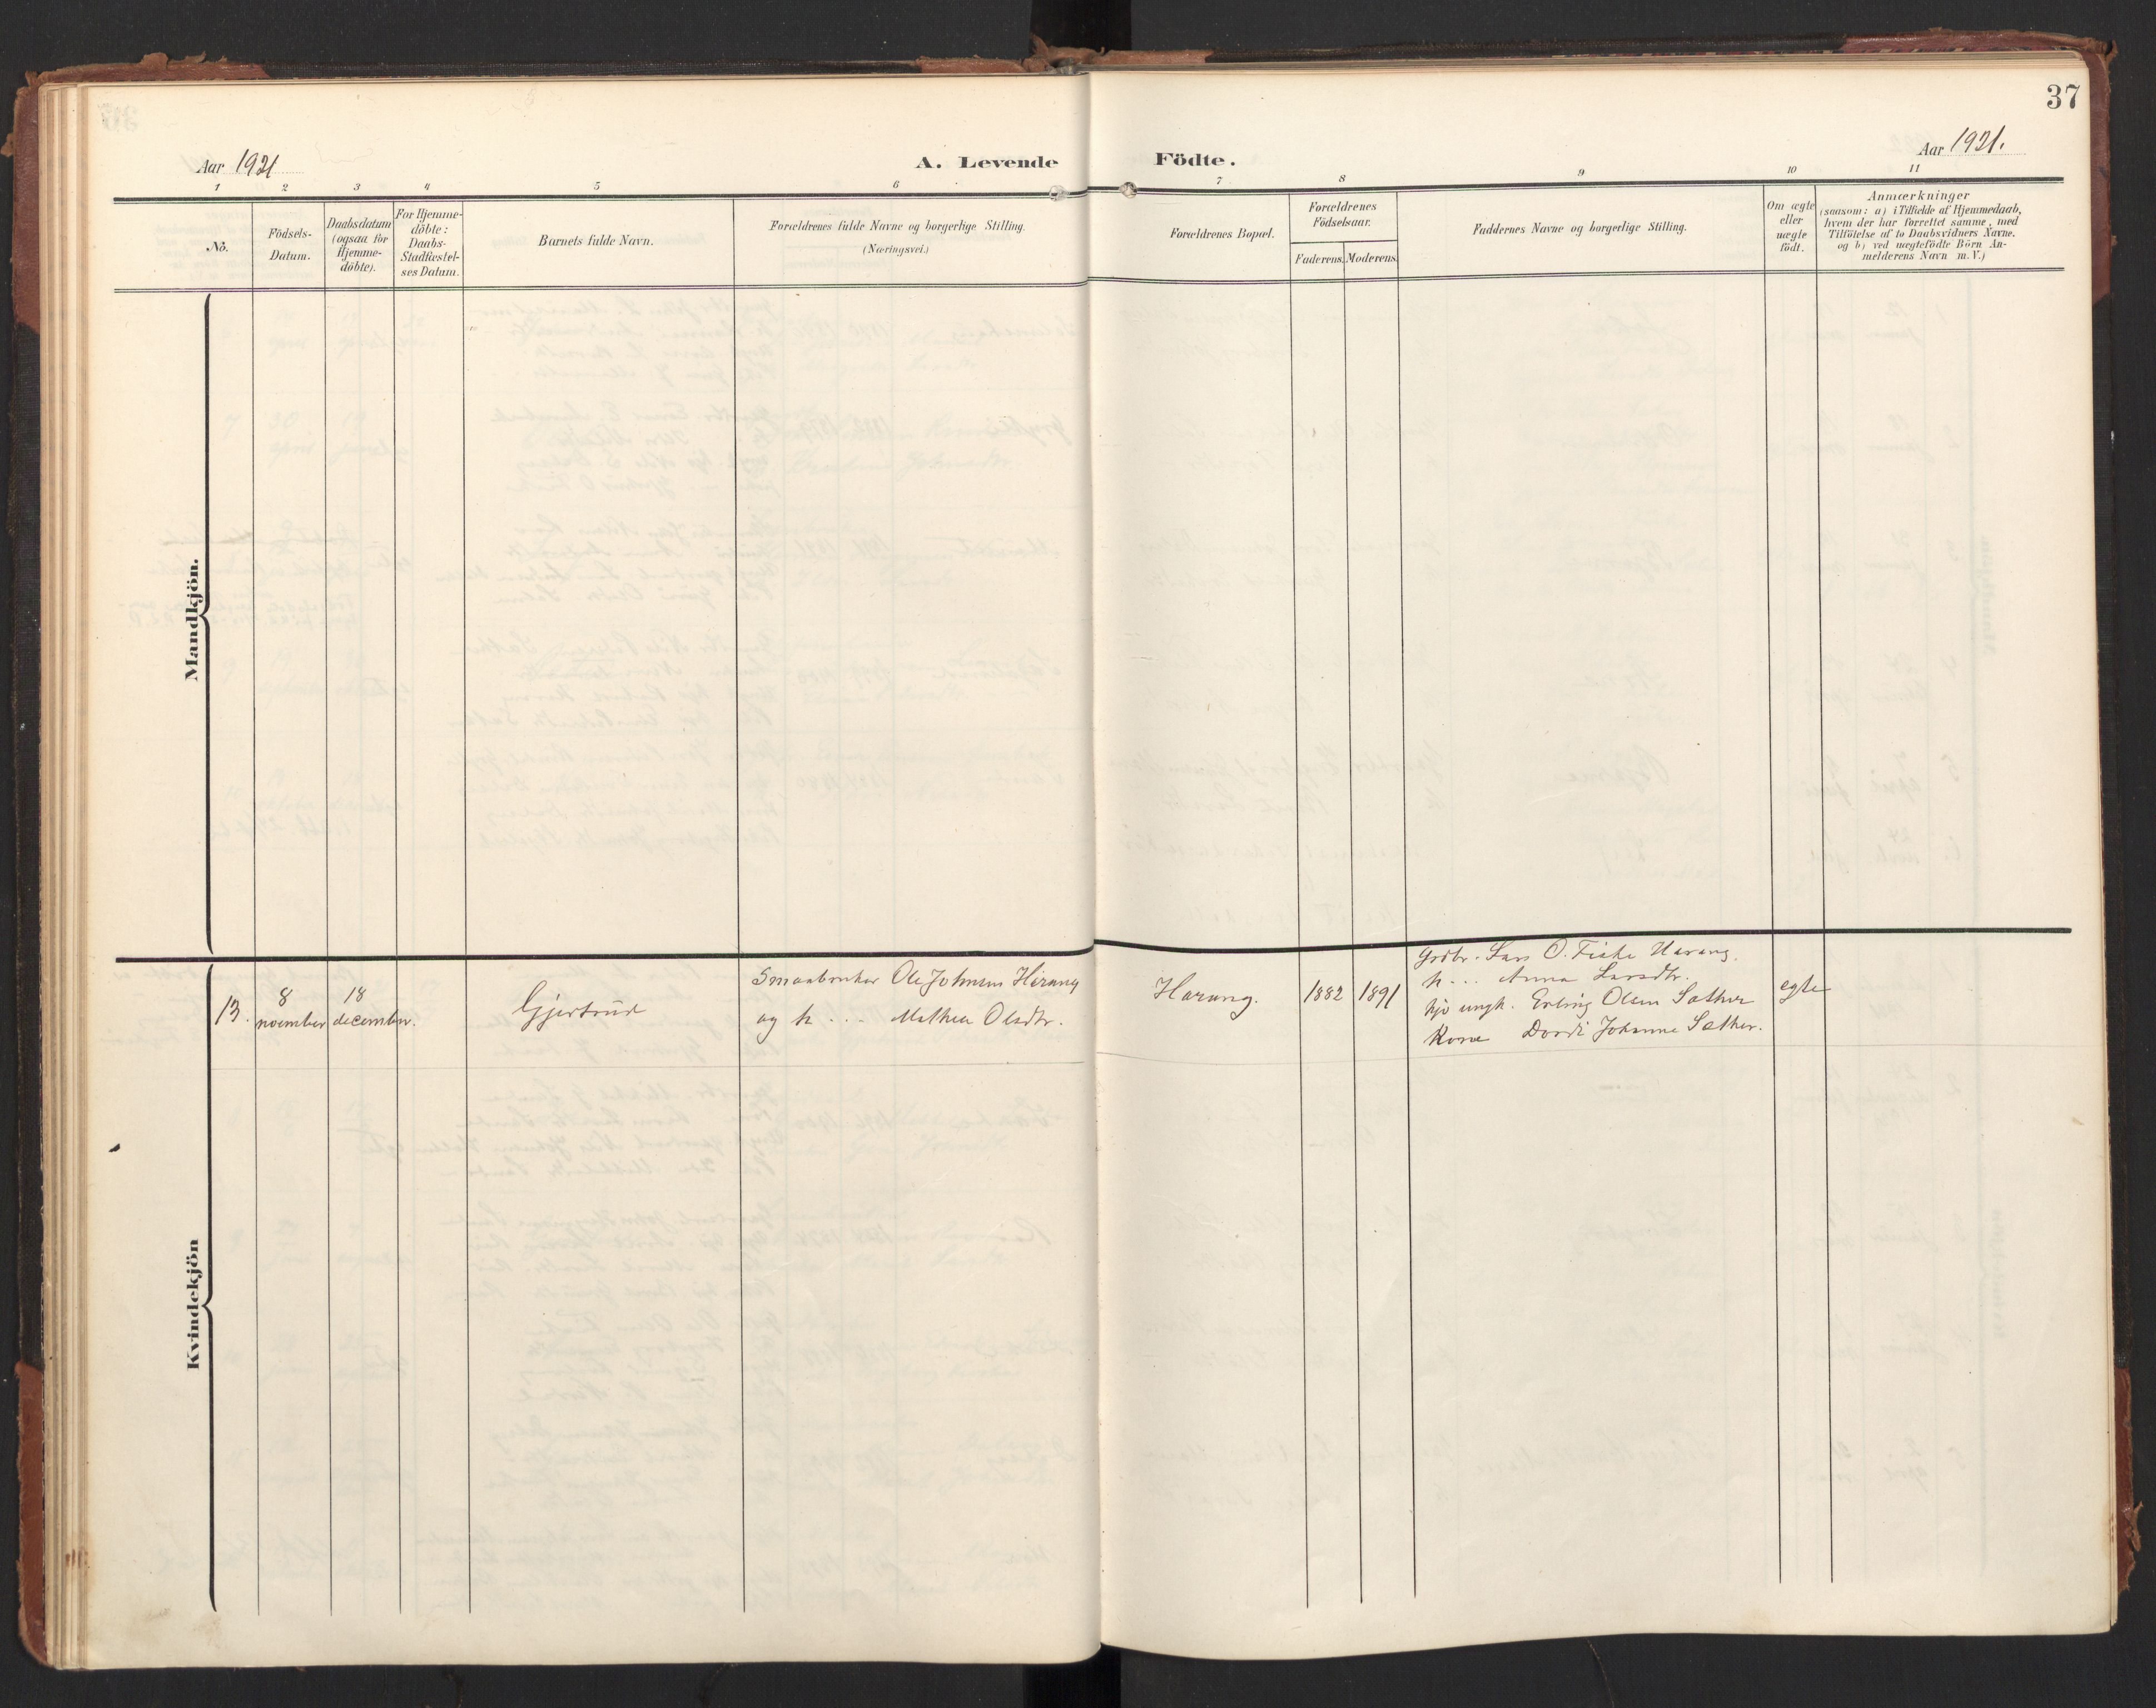 37
Aar 1921
A. Levende Födte.
Aar 1921.
1 2 3 4 5 6 7 8 9 10 11
No.
Födsels-
Datum.
Daabsdatum
(ogsaa for
Hjemme-
döbte).
For Hjemme-
döbte:
Daabs-
Stadfæstel-
ses Datum.
Barnets fulde Navn.
Forældrenes fulde Navne og borgerlige Stilling.
(Næringsvei.)
Forældrenes Bopæl.
Forældrenes
Födselsaar.
Faderens. Moderens.
Faddernes Navne og borgerlige Stilling.
Om ægte
eller
uægte
födt.
Anmærkninger
(saasom: a) i Tilfælde af Hjemmedaab,
hvem der har forrettet samme, med
Tilföielse af to Daabsvidners Navne.
og b) ved uægtefödte Börn An-
melderens Navn m. V.)
Mandkjön.
Kvindekjön
13.
8
november
18
december.
Gjertrud
Smaabruker Ole Johnsen Harang
og h... Mathea Olsdtr.
Harang.
1882
1891
Grdbr. Lars O. Fiske Harang.
h... Anna Larsdtr.
hjv ungk. Erling Olsen Sæther
Kone Dordi Johanne Sæther.
egte